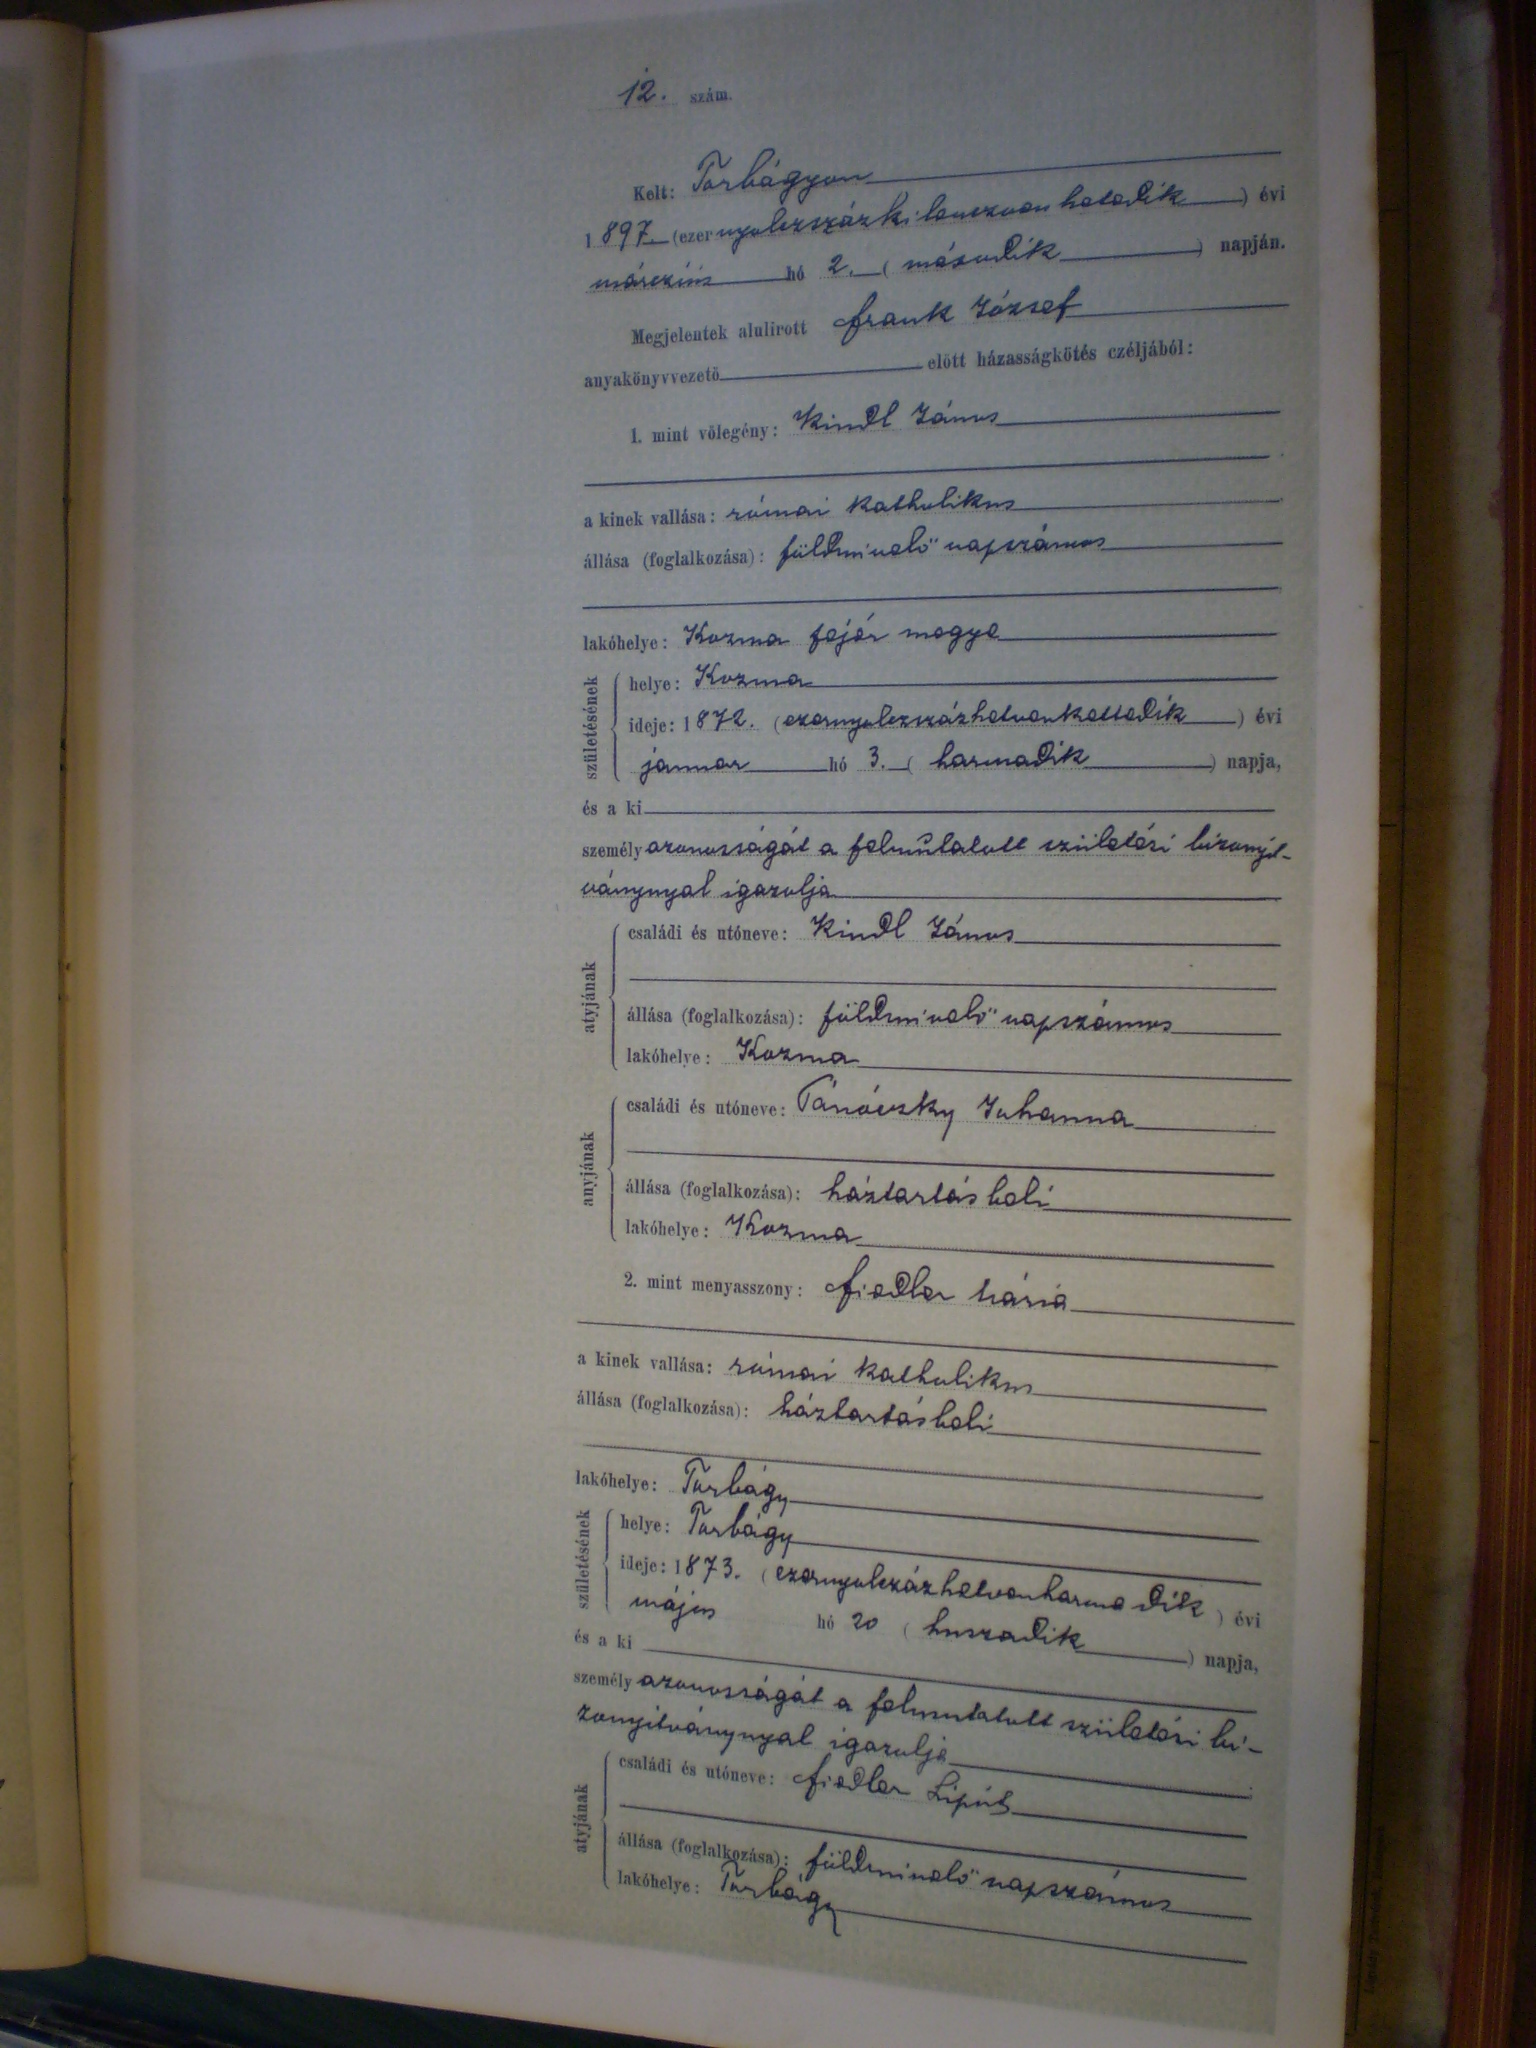 12. szám.
Kelt: Torbágyon
1897. (ezernyolczszázkilenczvenhetedik) évi
márczius hó 2. (második) napján.
Megjelentek alulirott Frank József
anyakönyvvezető előtt házasságkötés czéljából:
1. mint vőlegény: Kindl János
a kinek vallása: római katholikus
állása (foglalkozása): földmivelő napszámos
lakóhelye: Kozma fejér megye
születésének
helye: Kozma
ideje: 1872. (ezernyolczszázhetvenkettedik) évi
január hó 3. (harmadik) napja,
és a ki
személyazonosságát a felmutatott születési bizonyit-
ványnyal igazolja
atyjának
családi és utóneve: Kindl János
állása (foglalkozása): földmivelő napszámos
lakóhelye: Kozma
anyjának
családi és utóneve: Johanna
állása (foglalkozása): háztartásbeli
lakóhelye: Kozma
2. mint menyasszony: Fiedler Mária
a kinek vallása: római katholikus
állása (foglalkozása): háztartásbeli
lakóhelye: Torbágy
születésének
helye: Torbágy
ideje: 1873. (ezernyolczázhetvenharmadik) évi
május hó 20 (huszadik) napja,
és a ki
személyazonosságát a felmutatott születési bi-
zonyitványnyal igazolja
atyjának
családi és utóneve: Fiedler Lipót
állása (foglalkozása): földmivelő napszámos
lakóhelye: Torbágy